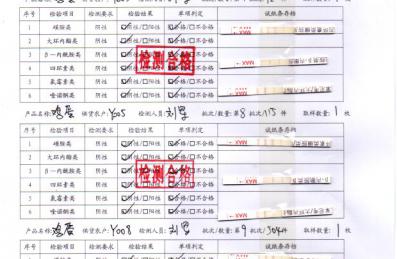 序号 检验项目 检测要求 检验结果 单项判定 试纸条存档
1 磺胺类 阴性 ☑阴性/☐阳性 ☑合格/☐不合格
2 大环内酯类 阴性 ☑阴性/☐阳性 ☑合格/☐不合格
3 β-内酰胺类 阴性 ☑阴性/☐阳性 ☑合格/☐不合格
4 四环素类 阴性 ☑阴性/☐阳性 ☑合格/☐不合格 MAX
5 氯霉素类 阴性 ☑阴性/☐阳性 ☑合格/☐不合格
6 喹诺酮类 阴性 ☑阴性/☐阳性 ☑合格/☐不合格 MAX
检测合格
产品名称: 鸡蛋 供货农户: Y005 检测人员: 刘 批次/数量: 第8批次/115件 取样数量: 1枚
序号 检验项目 检测要求 检验结果 单项判定 试纸条存档
1 磺胺类 阴性 ☑阴性/☐阳性 ☑合格/☐不合格
2 大环内酯类 阴性 ☑阴性/☐阳性 ☑合格/☐不合格
3 β-内酰胺类 阴性 ☑阴性/☐阳性 ☑合格/☐不合格
4 四环素类 阴性 ☑阴性/☐阳性 ☑合格/☐不合格 MAX
5 氯霉素类 阴性 ☑阴性/☐阳性 ☑合格/☐不合格
6 喹诺酮类 阴性 ☑阴性/☐阳性 ☑合格/☐不合格 MAX
检测合格
产品名称: 鸡蛋 供货农户: Y008 检测人员: 刘 批次/数量: 第9批次/304件 取样数量: 1枚
序号 检验项目 检测要求 检验结果 单项判定 试纸条存档